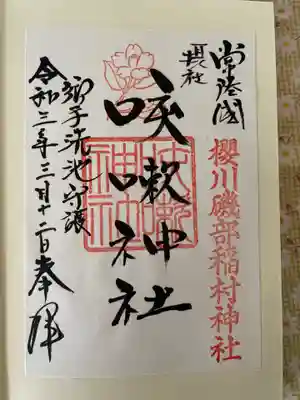 常陸國
摂社
櫻川磯部稲村神社
咳嗽神社
咳嗽
神社
御手洗池守護
令和三年三月十二日奉拝